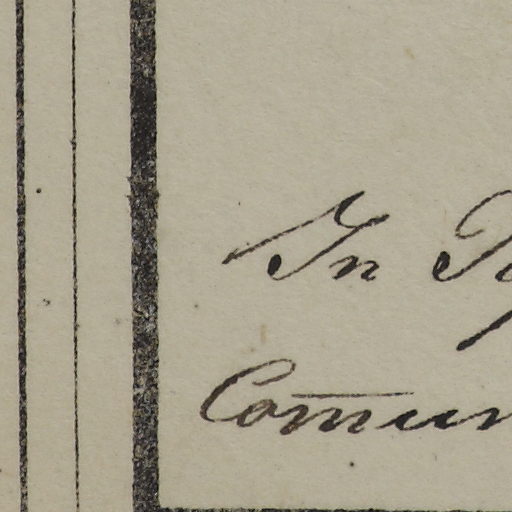 In
Com̅un